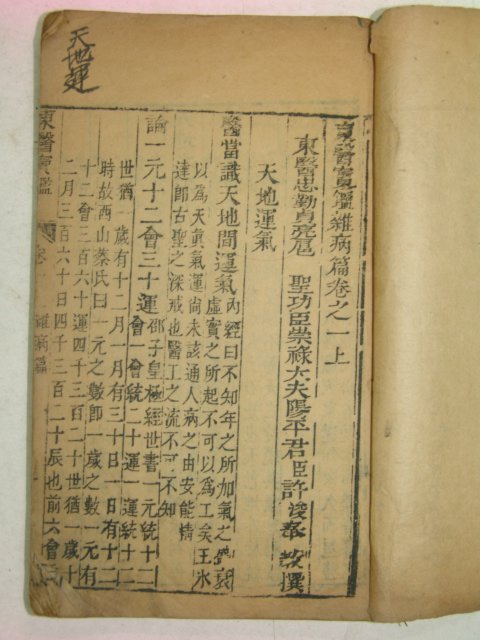 天地運
東醫寶鑑雜病篇卷之一上
東醫忠勤貞亮扈 聖功臣崇祿大夫陽平君臣許浚奉 敎撰
天地運氣
醫當識天地間運氣 內經曰不知年之所加氣之盛衰
虛實之所起不可以爲工矣王冰
以爲天眞氣運尙未該通人病之由安能精
達郎古聖之深戒也醫工之流不可不知
論一元十二會三十運 邵子皇極經世書一元統十二
會一會統二十運一運統十二
世猶一歲有十二月一月有三十日一日有十二
時故西山蔡氏曰一元之數即一歲之數一元有
十二會三百六十運四千三百二十世猶一歲十
二月三百六十日四千三百二十辰也前六會
東醫寶鑑 卷一 雜病篇